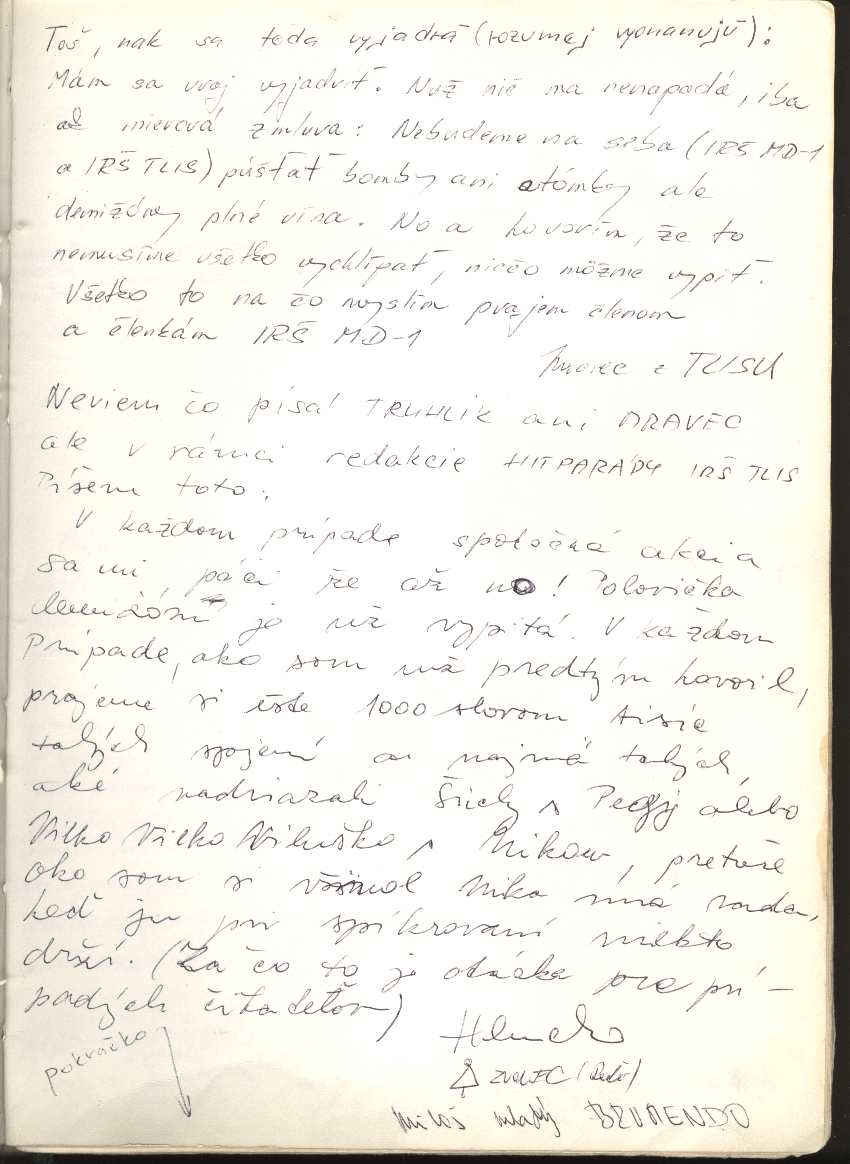 Toš, nak sa teda vyjadrá (rozumej vyonanujú):
Mám sa vraj vyjadriť. Nuž nič ma nenapadá, iba
až mierová zmluva: Nebudeme na seba (IRŠ MD-1
a IRŠ TLIS) púšťať bomby ani atómky ale
demižóny plné vína. No a hovorím, že to
nemusíme všetko vychlípať, niečo môžme vypiť.
Všetko to na čo myslím prajem členom
a členkám IRŠ MD-1
z TLISU
Neviem čo písal TRUHLIK ani MRAVEC
ale v rámci redakcie HITPARÁDY IRŠ TLIS
Píšem toto:
V každom prípade spoločná akcia
sa mi páči že až no! Polovička
demižónu je už vypitá. V každom
prípade, ako som už predtým hovoril,
prajeme si ešte 1000 slovom tisíc
takých spojení a najmä takých,
aké nadviazali s Peggy alebo
Vilko Vilko Viluško s Nikou, pretože
ako som si všimol Nika má rada,
keď ju pri spíkrovaní niekto
drží. (Za čo to je otázka pre prí-
padných čitateľov)
pokračko
ZVOLEC
Miloš mladý